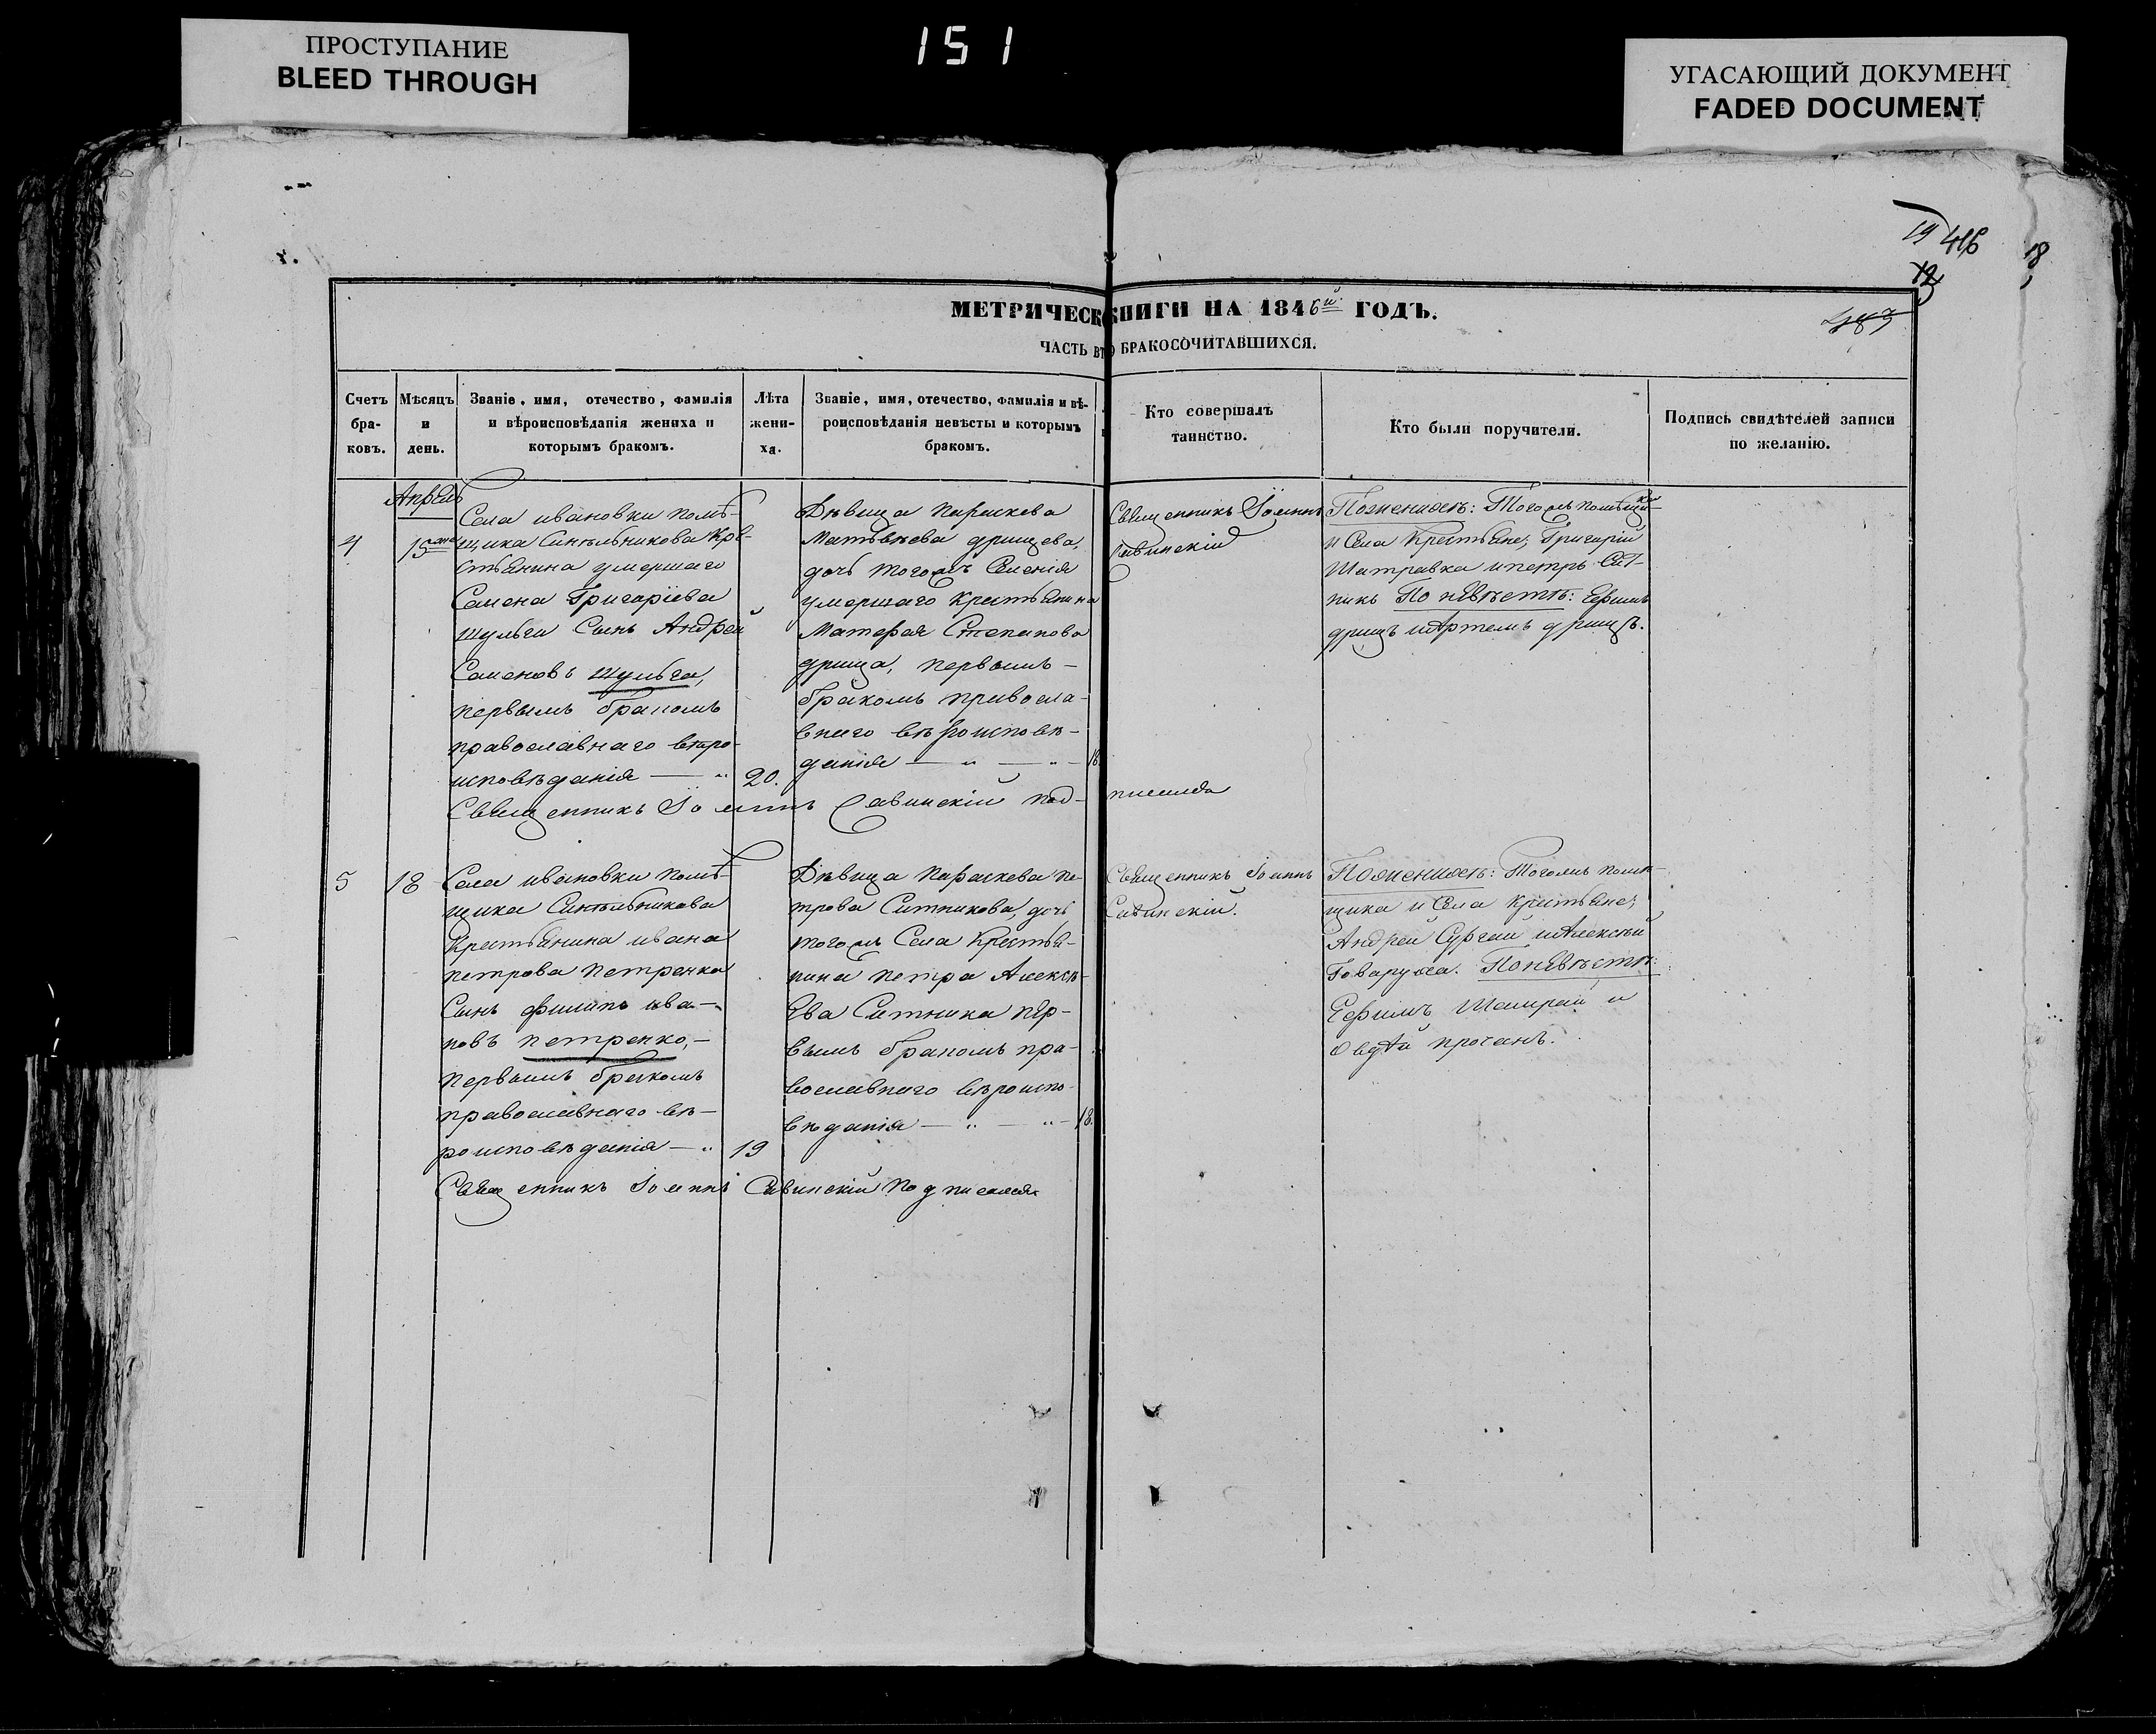 ПРОСТУПАНИЕ
BLEED THROUGH
151
УГАСАЮЩИЙ ДОКУМЕНТ
FADED DOCUMENT
19 416 18
МЕТРИЧЕСК КНИГИ НА 1846й ГОДЪ.
ЧАСТЬ ВТО БРАКОСОЧИТАВШИХСЯ.
Счетъ
бра-
ковъ.
Мѣсяцъ
и
день.
Званіе, имя, отечество, фамилія
и вѣроисповѣданія жениха и
которымъ бракомъ.
Лѣта
жени-
ха.
Званіе, имя, отечество, фамилія и вѣ-
роисповѣданія невѣсты и которымъ
бракомъ.
Кто совершалъ
таинство.
Кто были поручители.
Подпись свидѣтелей записи
по желанію.
Апрѣль
4
15
Села ивановки помѣ-
щика Синельникова Кре-
стьянина умершаго
Семена Григоріева
шульги Сынъ Андрей
Семеновъ шульга,
первымъ бракомъ
православнаго вѣро-
исповѣданія — „
20.
Дѣвица Параскева
Матвѣева дрищева,
дочь тогожъ Селенія
умершаго Крестьянина
Матфея Степанова
дрища, первымъ —
бракомъ правосла-
внаго вѣроисповѣ-
данія — „ — „ —
18.
Священникъ Іоаннъ
Савинскій
Поженихѣ: Тогожъ помѣщи-
ка
и Села Крестьяне; Григорій
Шатравка ипетръ Сит-
никъ По невѣстѣ: Ефимъ
дрищъ иАртемъ дрищъ.
Священникъ Іоаннъ Савинскій под- писался
5
18
Села ивановки помѣ-
щика Синельникова
Крестьянина ивана
петрова петренка
Сынъ филипъ ива-
новъ петренко, —
первымъ бракомъ
православнаго вѣ-
роисповѣданія — „
19
Дѣвица Параскева пе-
трова Ситникова, дочь
тогожъ Села Крестья-
нина петра Алексѣ-
ева Ситника пер-
вымъ бракомъ пра-
вославнаго вѣроиспо-
вѣданія — „ — „ —
18.
Священникъ Іоаннъ
Савинскій.
Поженихѣ: Тогожъ помѣ-
щика и Села Крестьяне;
Андрей Сургай иАлексѣй
Говаруха. Поневѣстѣ:
Ефимъ Шамрай и
Овдѣй прочанъ.
Священникъ Іоаннъ Савинскій подписался